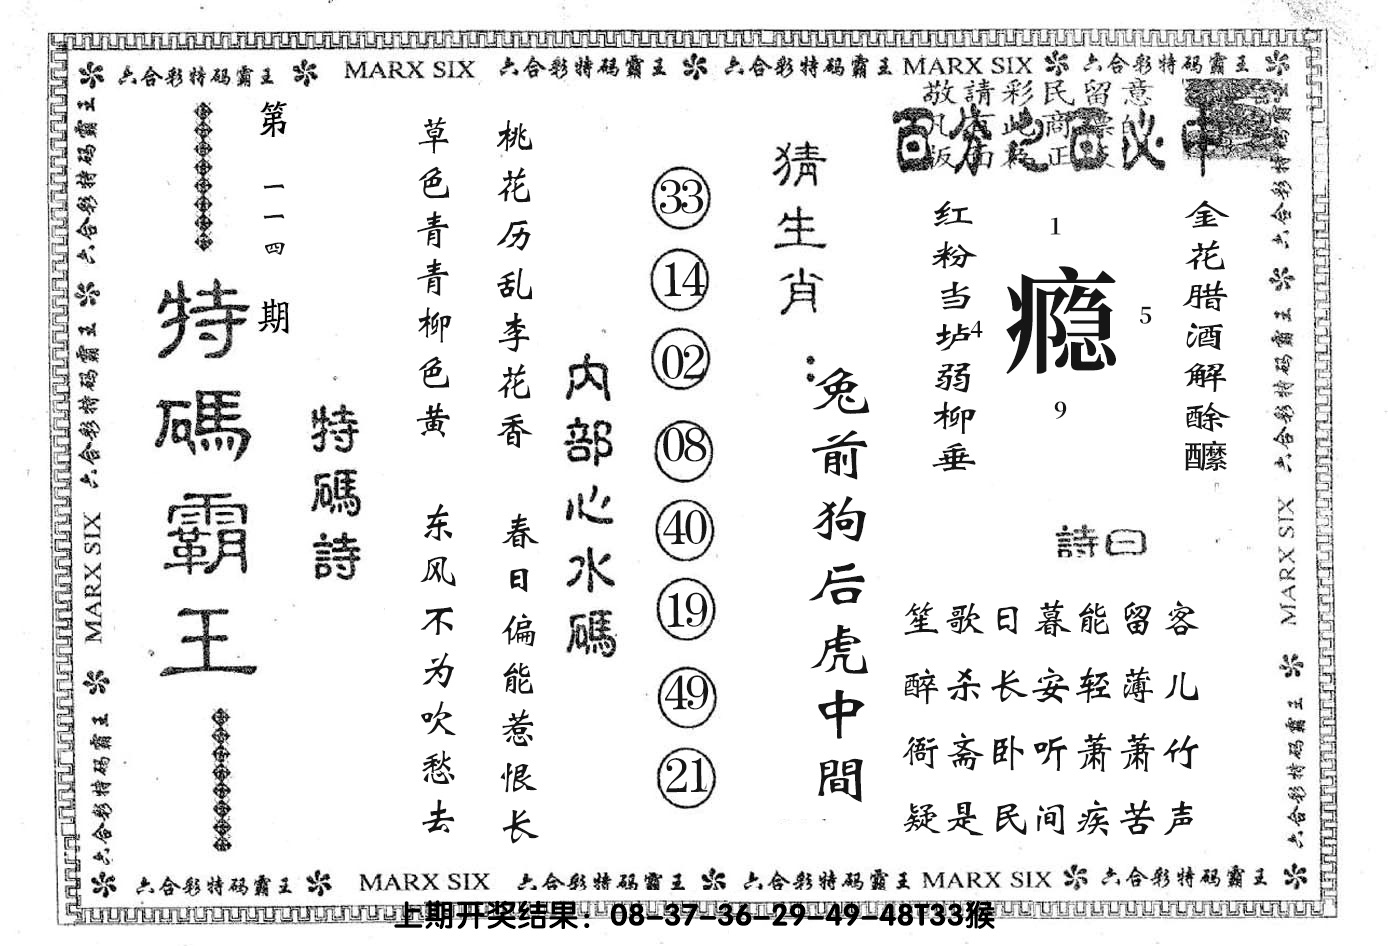 六合彩特码霸王 MARX SIX 六合彩特码霸王 六合彩特码霸王 MARX SIX 六合彩特码霸王
敬請彩民留意
百分之百必中
金花腊酒解酴醾
红粉当垆弱柳垂
1
4
瘾
5
9
詩曰
笙歌日暮能留客
醉杀长安轻薄儿
衙斋卧听萧萧竹
疑是民间疾苦声
猜生肖:
兔前狗后虎中間
33
14
02
08
40
19
49
21
内部心水碼
桃花历乱李花香
春日偏能惹恨长
草色青青柳色黄
东风不为吹愁去
特碼詩
第一一四期
特碼霸王
六合彩特码霸王 六合彩特码霸王 MARX SIX 六合彩特码霸王
六合彩特码霸王 六合彩特码霸王 MARX SIX 六合彩特码霸王
六合彩特码霸王 MARX SIX 六合彩特码霸王 六合彩特码霸王 MARX SIX 六合彩特码霸王
上期开奖结果：08-37-36-29-49-48T33猴